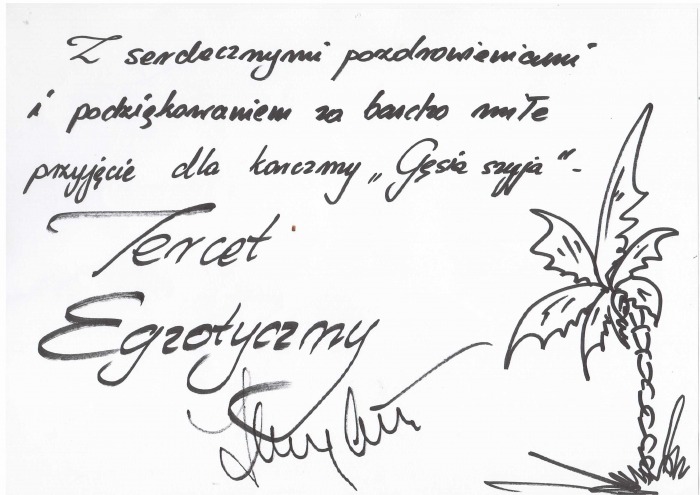 Z serdecznymi pozdrowieniami
i podziękowaniem za bardzo miłe
przyjęcie dla karczmy „Gęsia szyja” -
Tercet
Egzotyczny